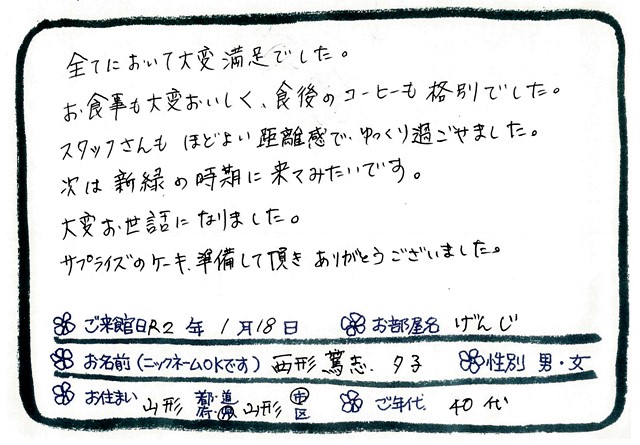 全てにおいて大変満足でした。
お食事も大変おいしく、食後のコーヒーも格別でした。
スタッフさんも ほどよい距離感で、ゆっくり過ごせました。
次は新緑の時期に来てみたいです。
大変お世話になりました。
サプライズのケーキ、準備して頂きありがとうございました。
ご来館日R2年 1月18日 お部屋名 げんじ
お名前(ニックネームOKです) 西形 篤志、夕子 性別 男・女
お住まい 山形 都道府県 山形 市区 ご年代 40代